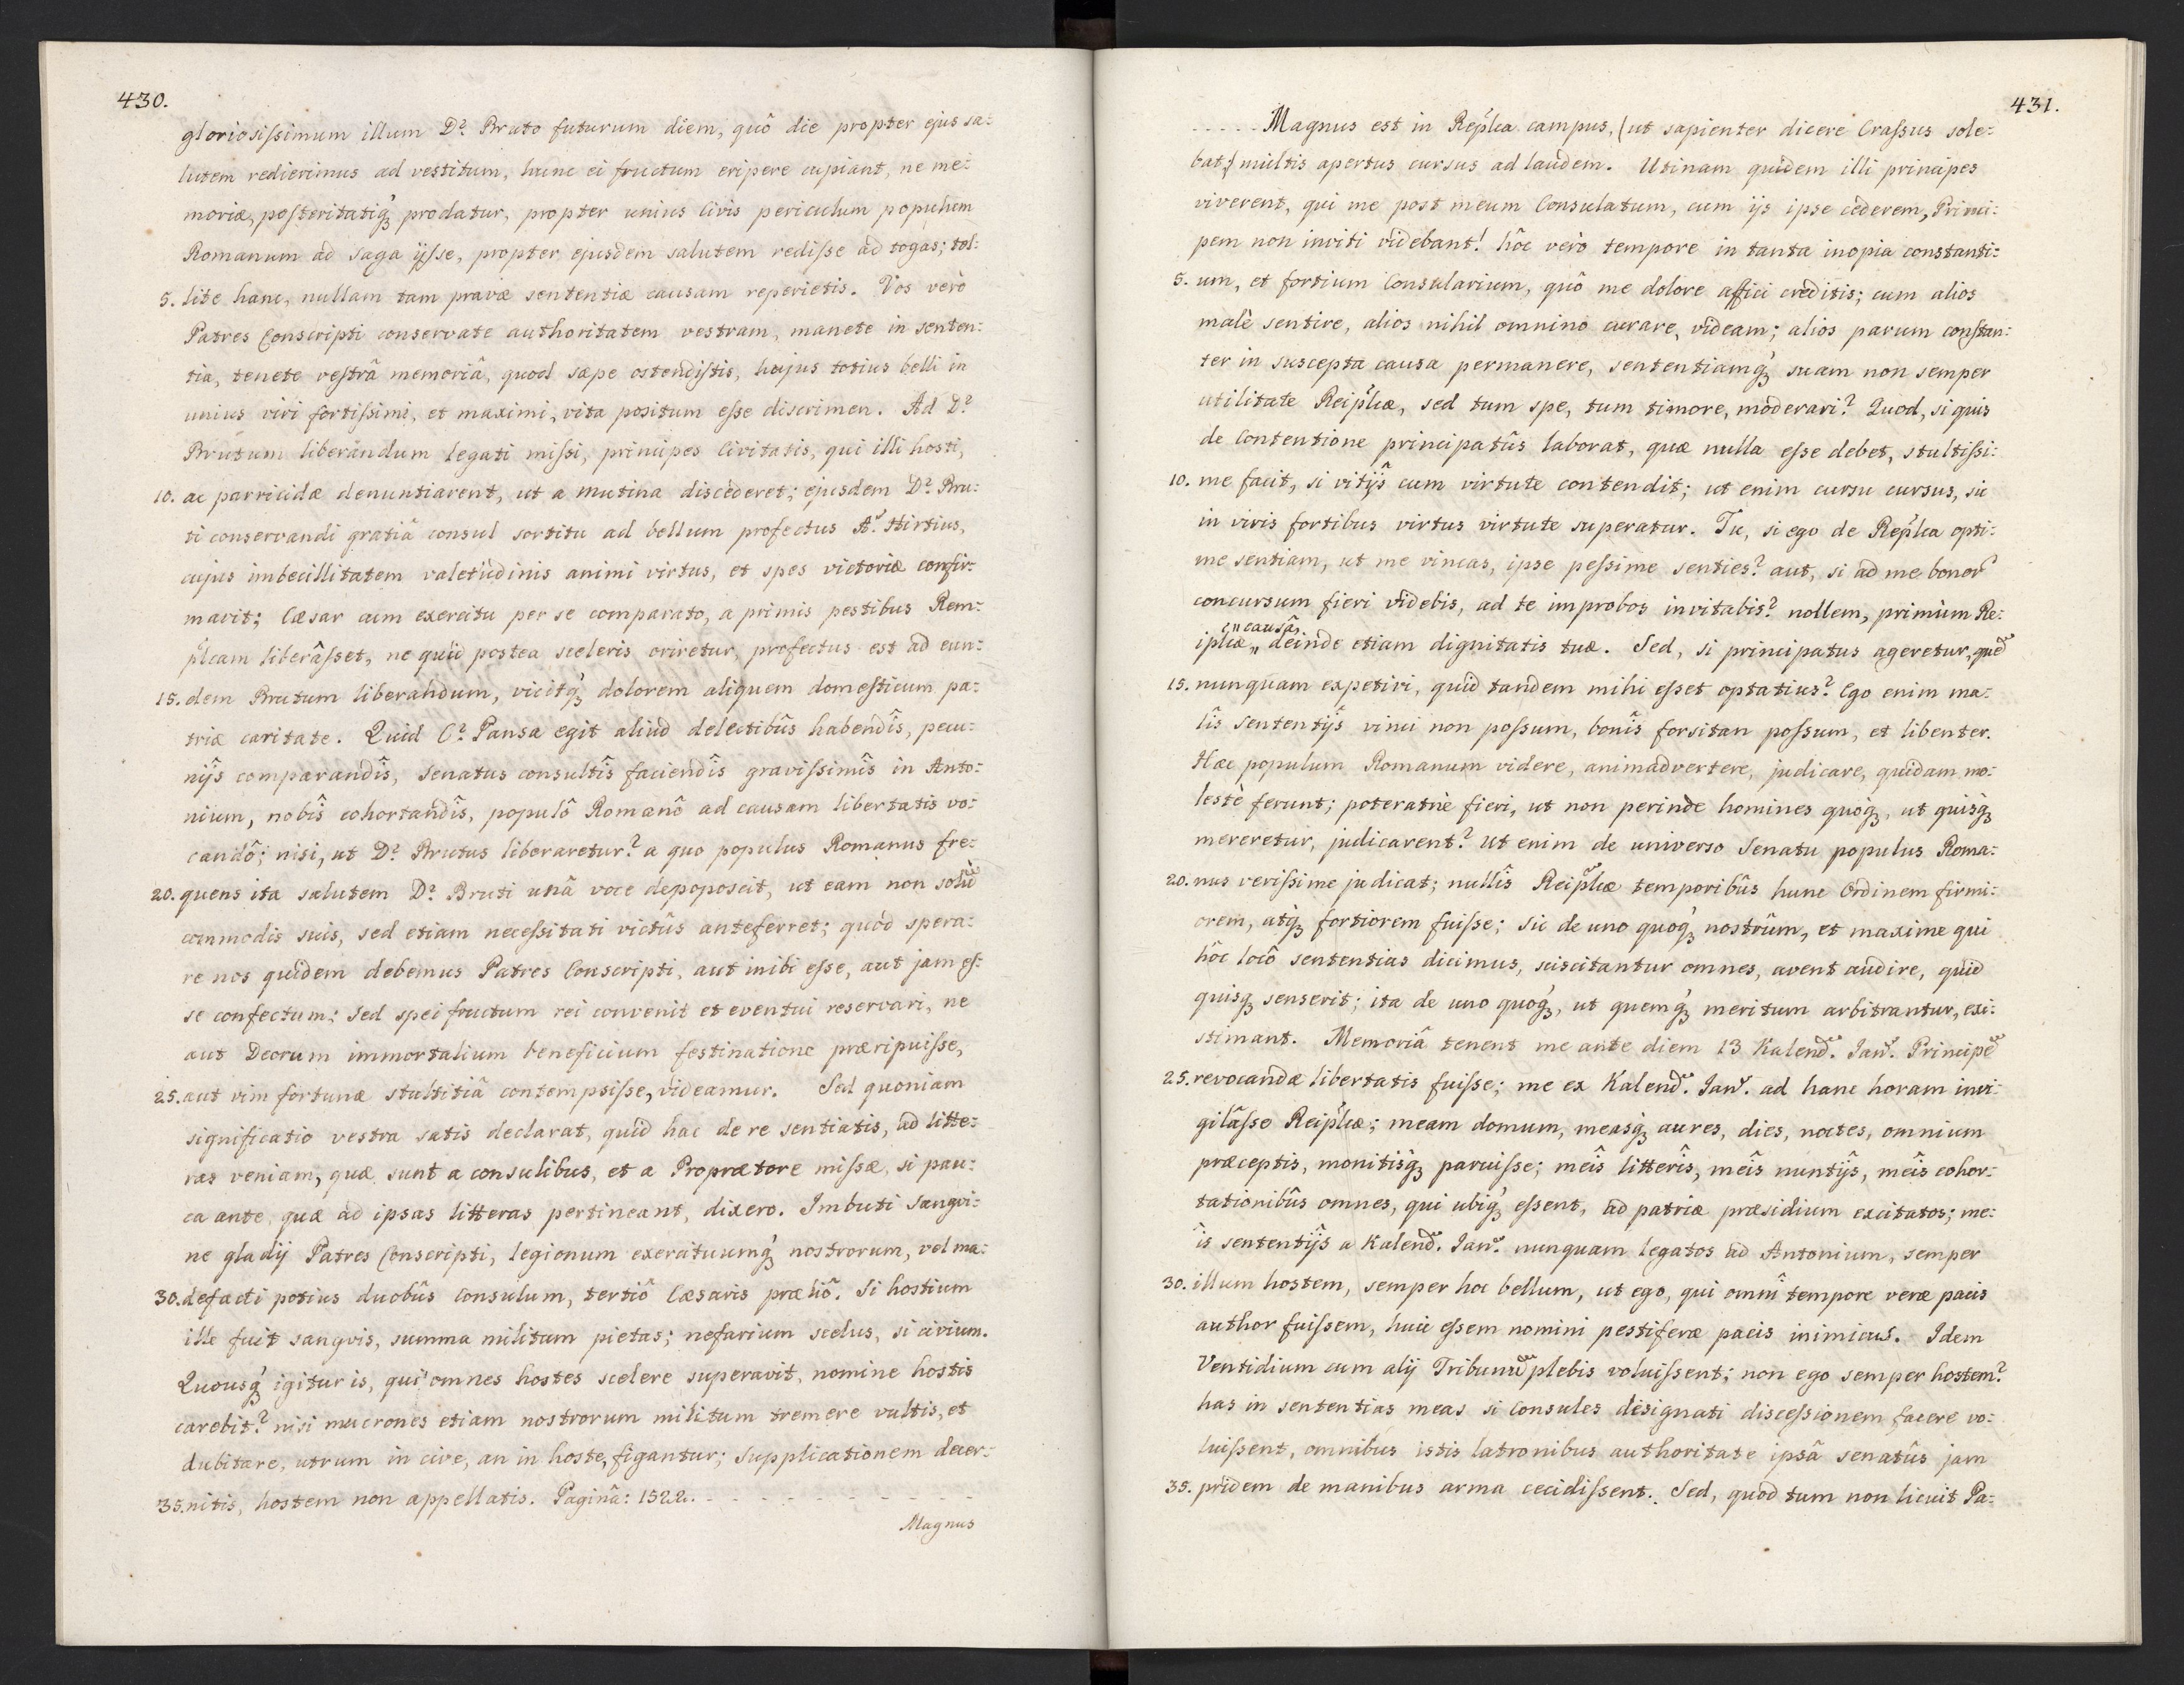 430.
gloriosissimum illum D? Bruto futurum diem, quô die propter ejus sa:
lutem redierimus ad vestitum, hunc ei fructum eripere cupiant, ne me:
moriæ, posteritatiq́ȝ prodatur, propter unius Civis periculum populum
Romanum ad saga ijsse, propter ejusdem salutem redisse ad togas; tol:
5. lite hanc, nullam tam pravæ sententiæ causam reperietis. Vos verò
Patres Conscripti conservate authoritatem vestram, manete in senten:
tia, tenete vestrâ memoriâ, quod sæpe ostendistis, hujus totius belli in
unius viri fortissimi, et maximi, vita positum esse discrimen. Ad D?
Brutum liberandum legati missi, principes Civitatis, qui illi hosti,
10. ac parricidæ denuntiarent, ut a Mutina discederet; ejusdem D? Bru:
ti conservandi gratiâ consul sortitu ad bellum profectus A. Hirtius,
cujus imbecillitatem valetudinis animi virtus, et spes victoriæ confir:
mavit; Cæsar cum exercitu per se comparato, a primis pestibus Rem:
p̋lcam liberâsset, ne quid postea sceleris oriretur, profectus est ad eun:
15. dem Brutum liberandum, vicitq́ȝ dolorem aliquem domesticum pa:
triæ caritate. Quid C? Pansa egit aliud delectibûs habendîs, pecu:
nijs comparandîs, senatus consultîs faciendîs gravissimîs in Anto:
nium, nobîs cohortandîs, populô Romanô ad causam libertatis vo:
candô; nisi, ut D? Brutus liberaretur? a quo populus Romanus fre:
20. quens ita salutem D? Bruti unâ voce depoposcit, ut eam non solũ
commodis suis, sed etiam necessitati victûs anteferret; quòd spera:
re nos quidem debemus Patres Conscripti, aut inibi esse, aut jam es:
se confectum; sed spei fructum rei convenit et eventui reservari, ne
aut Deorum immortalium beneficium festinatione præripuisse,
25. aut vim fortunæ stultitiâ contempsisse, videamur. Sed quoniam
significatio vestra satis declarat, quid hac de re sentiatis, ad litte:
ras veniam, quæ sunt a consulibus, et a Proprætore missæ, si pau:
ca ante, quæ ad ipsas litteras pertineant, dixero. Imbuti sangvi:
ne gladij Patres Conscripti, legionum exercituumq́ȝ nostrorum, vel ma:
30. defacti potius duobûs Consulum, tertiô Cæsaris præliô. Si hostium
ille fuit sangvis, summa militum pietas; nefarium scelus, si civium.
Quousq́ȝ igitur is, qui omnes hostes scelere superavit, nomine hostis
carebit? nisi mucrones etiam nostrorum militum tremere vultis, et
dubitare, utrum in cive, an in hoste, figantur; supplicationem decer:
35. nitis, hostem non appellatis. Paginâ: 1522. - - - - - - - -
Magnus
431.
- - - - - Magnus est in Rep̋lca campus, (ut sapienter dicere Crassus sole:
bat,) multis apertus cursus ad laudem. Utinam quidem illi principes
viverent, qui me post meum Consulatum, cum ijs ipse cederem, Princi:
pem non inviti videbant! hôc verò tempore in tanta inopia constanti:
5. um, et fortium Consularium, quô me dolore affici creditis; cum alios
malè sentire, alios nihil omnino curare, videam; alios parum constan:
ter in suscepta causa permanere, sententiamq́ȝ suam non semper
utilitate Reip̋lcæ, sed tum spe, tum timore, moderari? Quod, si quis
de Contentione principatûs laborat, quæ nulla esse debet, stultissi:
10. me facit, si vitijs cum virtute contendit; ut enim cursu cursus, sic
in viris fortibus virtus virtute superatur. Tu, si ego de Rep̋lca opti:
me sentiam, ut me vincas, ipse pessime senties? aut, si ad me bonor̃
concursum fieri videbis, ad te improbos invitabis? nollem, primùm Re:
„causâ,
iplcæ „ deinde etiam dignitatis tuæ. Sed, si principatus ageretur, quẽ
15. nunquam expetivi, quid tandem mihi esset optatius? Ego enim ma:
lîs sententijs vinci non possum, bonîs forsitan possum, et libenter.
Hæc populum Romanum videre, animadvertere, judicare, quidam mo:
lestè ferunt; poteratnè fieri, ut non perinde homines quoq́ȝ, ut quisq́ȝ
mereretur, judicarent? Ut enim de universo Senatu populus Roma:
20. nus verissime judicat; nullîs Reip̋lcæ temporibûs hunc Ordinem firmi:
orem, atq́ȝ fortiorem fuisse; sic de uno quoq́ȝ nostrûm, et maxime qui
hôc locô sententias dicimus, sciscitantur omnes, avent audire, quid
quisqȝ senserit; ita de uno quoq́ȝ, ut quemq́ȝ meritum arbitrantur, exi:
stimant. Memoriâ tenent me ante diem 13 Kalend. Jan. Principẽ
25. revocandæ libertatis fuisse; me ex Kalend. Jan. ad hanc horam invi:
gilâsse Reip̋lcæ; meam domum, measq́ȝ aures, dies, noctes, omnium
præceptis, monitisq́ȝ paruisse; meîs litterîs, meîs nuntijs, meîs cohor:
tationibûs omnes, qui ubiq́ȝ essent, ad patriæ præsidium excitatos; me:
îs sententijs a Kalend. Jan. nunquam legatos ad Antonium, semper
30. illum hostem, semper hoc bellum, ut ego, qui omnî tempore veræ pacis
author fuissem, huic essem nomini pestiferæ pacis inimicus. Idem
Ventidium cum alij Tribunũ plebis voluissent; non ego semper hostem?
has in sententias meas si Consules designati discessionem facere vo:
luissent, omnibus istis latronibus authoritate ipsâ senatûs jam
35. pridem de manibus arma cecidissent. Sed, quod tum non licuit Pa: